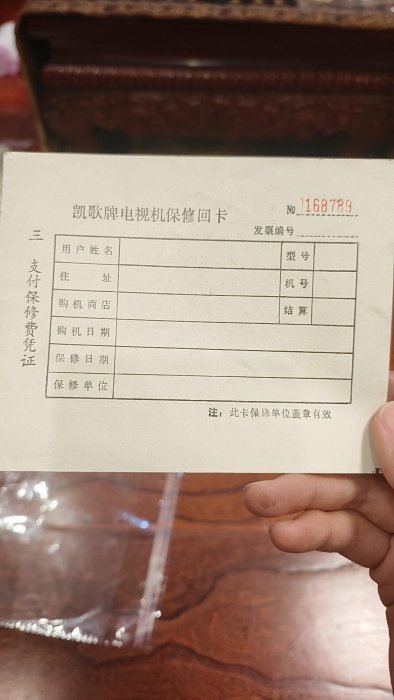 凯歌牌电视机保修回卡
№ 0168789
发票编号
三 支付保修费凭证
用户姓名 型号
住址 机号
购机商店 结算
购机日期
保修日期
保修单位
注：此卡保修单位盖章有效